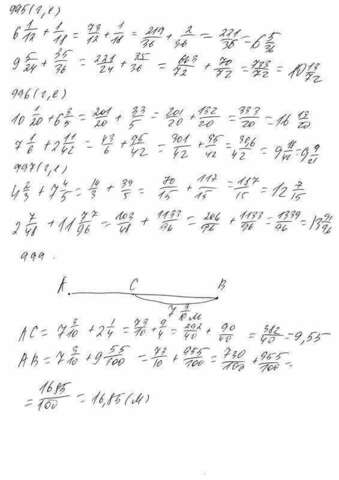 995(г,е)
6 1/12 + 1/18 = 73/12 + 1/18 = 219/36 + 2/36 = 221/36 = 6 5/36
9 5/24 + 35/36 = 221/24 + 35/36 = 663/72 + 70/72 = 733/72 = 10 13/72
996(г,е)
10 1/20 + 6 3/5 = 201/20 + 33/5 = 201/20 + 132/20 = 333/20 = 16 13/20
7 1/6 + 2 11/42 = 43/6 + 95/42 = 301/42 + 95/42 = 396/42 = 9 18/42 = 9 9/21
997(г,е)
4 2/3 + 7 4/5 = 14/3 + 39/5 = 70/15 + 117/15 = 187/15 = 12 7/15
2 7/48 + 11 77/96 = 103/48 + 1133/96 = 206/96 + 1133/96 = 1339/96 = 13 91/96
999.
A C B
7 3/10 м
AC = 7 3/10 + 2 1/4 = 73/10 + 9/4 = 292/40 + 90/40 = 382/40 = 9,55
AB = 7 3/10 + 9 55/100 = 73/10 + 955/100 = 730/100 + 955/100 =
= 1685/100 = 16,85 (м)